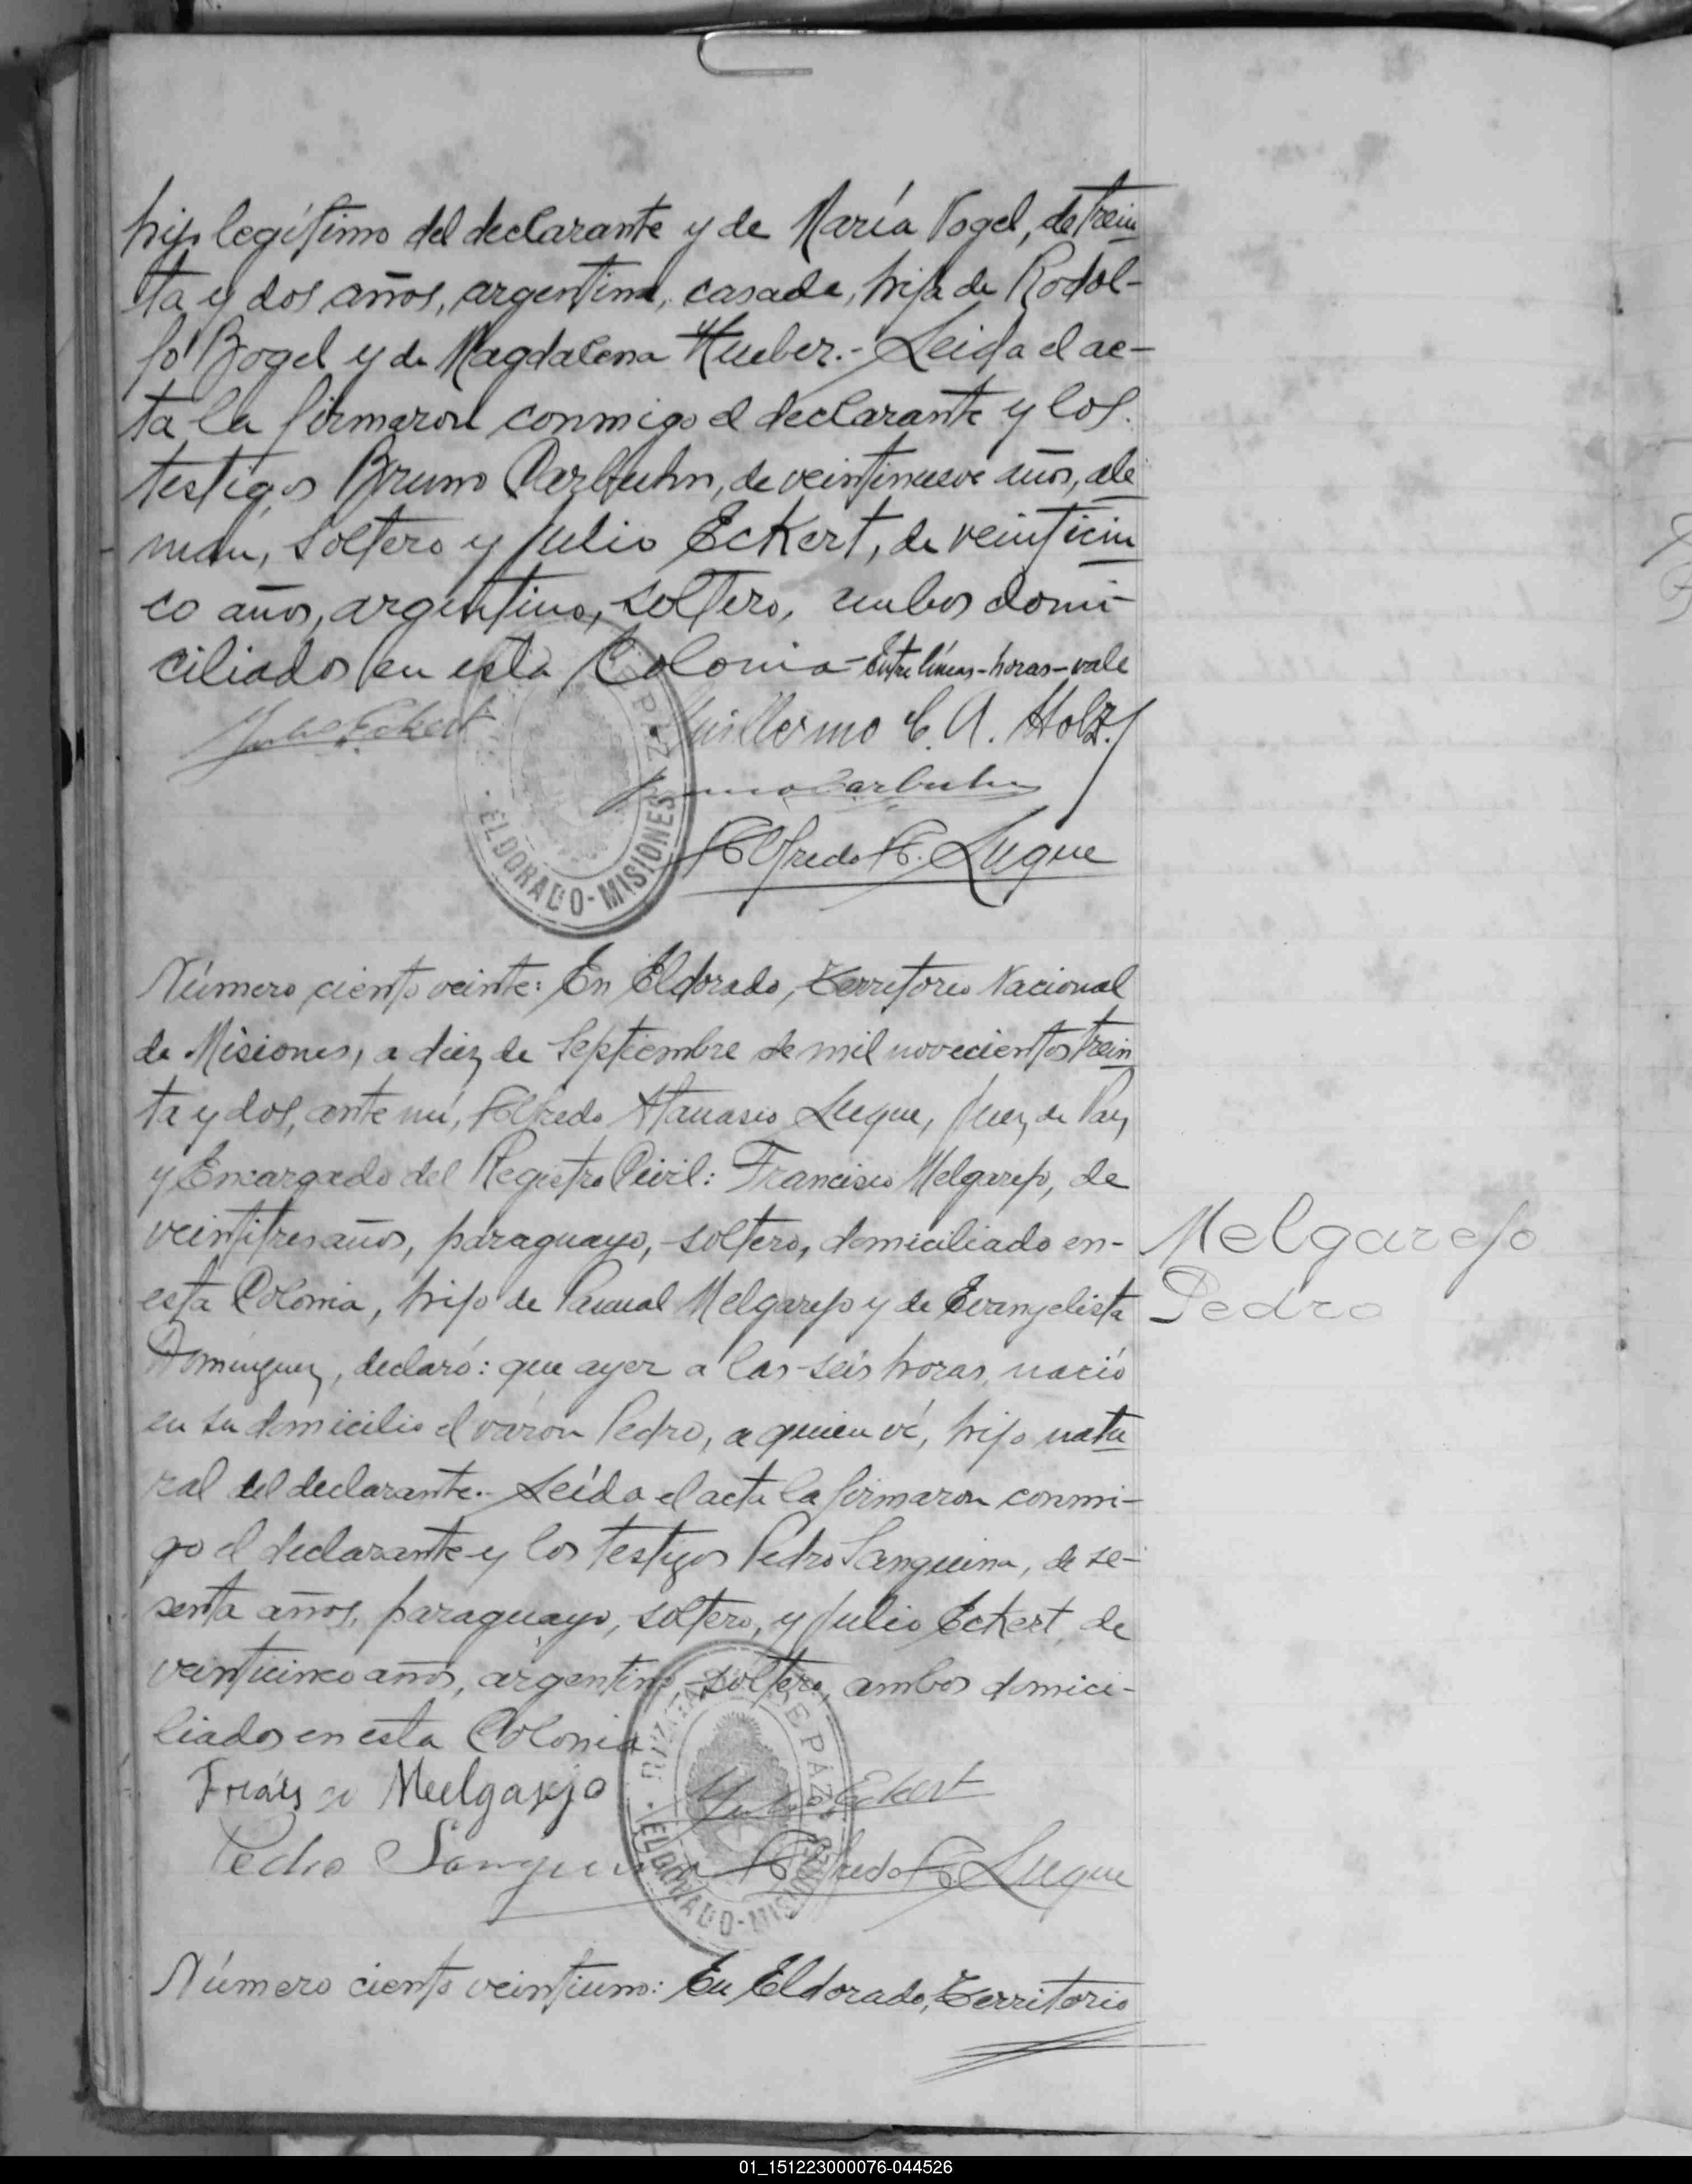 hijo legítimo del declarante y de María Vogel, de trein
ta y dos años, argentina, casada, hija de Rodol-
fo Bogel y de Magdalena Hueber.- Leida el ac-
ta la firmaron conmigo el declarante y los
testigos Bruno Carbuhn, de veintinueve años, ale
mán, soltero y Julio Eckert, de veinticin
co años, argentino, soltero, ambos domi-
ciliados en esta Colonia - Entre líneas - horas - vale
Julio Eckert
Guillermo C. A. Holz
Bruno Carbuhn
Alfredo A. Luque
DE PAZ
ELDORADO - MISIONES
Número ciento veinte: En Eldorado, Territorio Nacional
de Misiones, a diez de Septiembre de mil novecientos trein
ta y dos, ante mí, Alfredo Atanasio Luque, Juez de Paz
y Encargado del Registro Civil: Francisco Melgarejo, de
veintitres años, paraguayo, soltero, domiciliado en-
esta Colonia, hijo de Pascual Melgarejo y de Evangelista
Dominguez, declaró: que ayer a las seis horas, nació
en su domicilio el varon Pedro, a quien vé, hijo natu
ral del declarante.- Leída el acta la firmaron conmi-
go el declarante y los testigos Pedro Sanguina, de se-
senta años, paraguayo, soltero, y Julio Eckert, de
veinticinco años, argentino, soltero, ambos domici-
liados en esta Colonia
Melgarejo
Pedro
Melgarejo
Julio Eckert
Pedro Sanguina
Alfredo A. Luque
DE PAZ
ELDORADO - MISIONES
Número ciento veintiuno: En Eldorado, Territorio
01_151223000076-044526